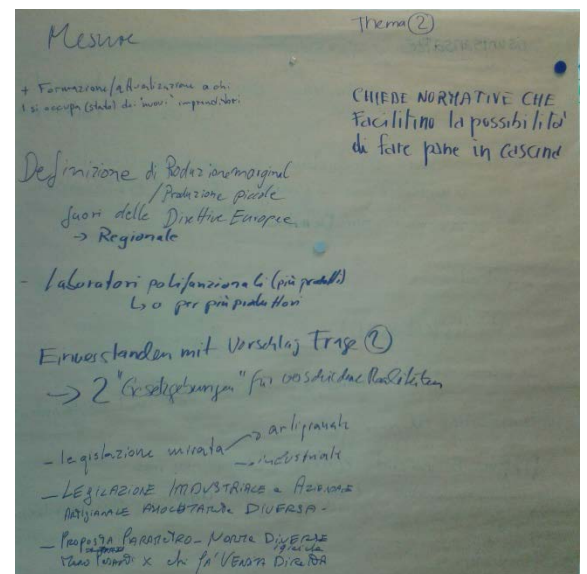 Mesure
Thema ②
+ Formazione/attualizzazione a chi
si occupa (stato) dei "nuovi" imprenditori
CHIEDE NORMATIVE CHE
Facilitino la possibilità
di fare pane in cascina
Definizione di Produzione marginal
/Produzione piccole
fuori delle Direttive Europee
→ Regionale
- Laboratori polifunzionali (più prodotti)
↳ o per più produttori
Einverstanden mit Vorschlag Frage ②
→ 2 "Gesetzgebungen" für verschiedene Realitäten
- legislazione mirata → artigianale
→ industriale
- LEGISLAZIONE INDUSTRIALE e AZIENDE
ARTIGIANALE DIVERSA -
- PROPOSTA PARAMETRO - NORMA DIVERSE
x chi FA' VENDITA DIRETTA